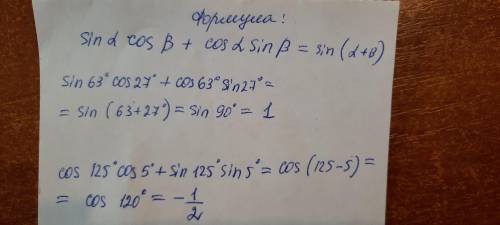 Формула:
sin α cos β + cos α sin β = sin (α+β)
sin 63° cos 27° + cos 63° sin 27° =
= sin (63°+27°) = sin 90° = 1
cos 125° cos 5° + sin 125° sin 5° = cos (125-5) =
= cos 120° = -1/2